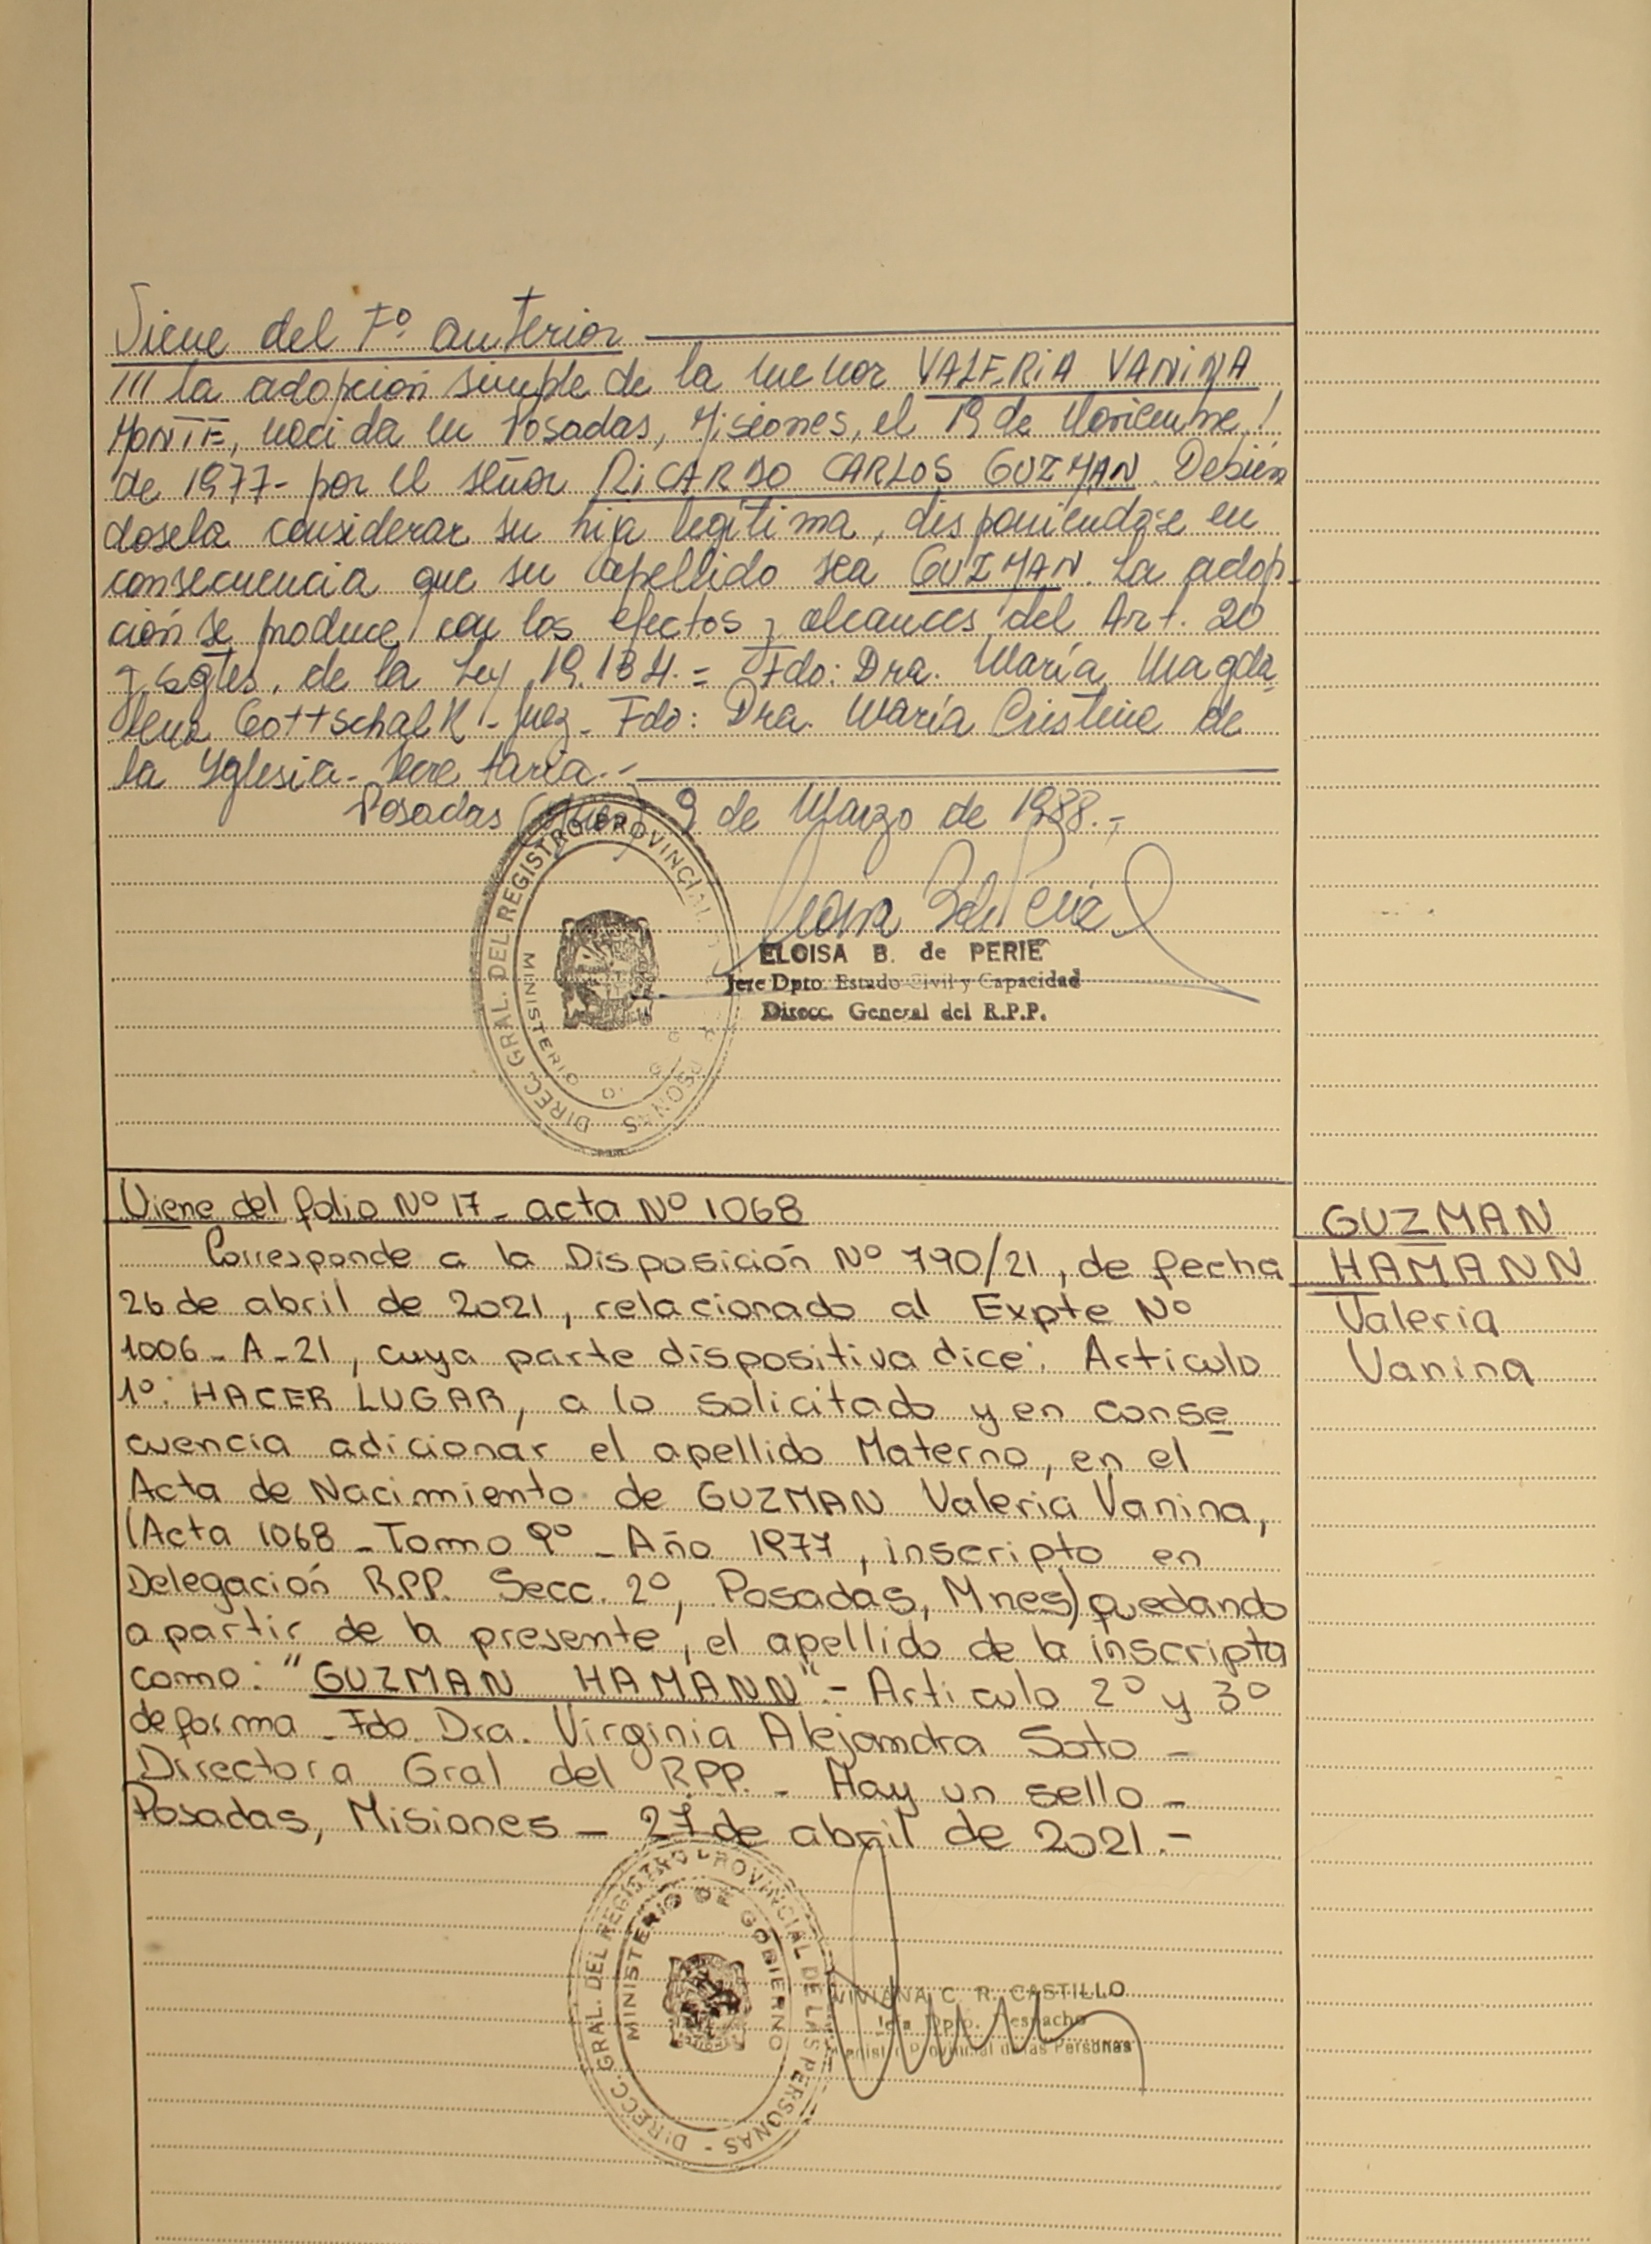 Viene del Fº anterior
/// la adopción simple de la menor VALERIA VANINA
MONTE, nacida en Posadas, Misiones, el 19 de Noviembre
de 1977- por el señor RICARDO CARLOS GUZMAN. Debién
dosela considerar su hija legítima, disponiendose en
consecuencia que su apellido sea GUZMAN. La adop-
ción se produce con los efectos y alcances del Art. 20
y sgtes. de la Ley 19.134.= Fdo: Dra. María Magda
lena Gottschalk - Juez - Fdo: Dra. María Cristina de
la Yglesia - Secretaria.-
Posadas (Mnes) 9 de Marzo de 1988.-
DIREC. GRAL. DEL REGISTRO PROVINCIAL
MINISTERIO
ELOISA B. de PERIE
Jefe Dpto. Estado Civil y Capacidad
Direcc. General del R.P.P.
Viene del folio Nº 17 - acta Nº 1068
GUZMAN
HAMANN
Valeria
Vanina
Corresponde a la Disposición Nº 790/21, de fecha
26 de abril de 2021, relacionado al Expte Nº
1006 - A - 21, cuya parte dispositiva dice: Articulo
1º: HACER LUGAR, a lo solicitado y en conse
cuencia adicionar el apellido Materno, en el
Acta de Nacimiento de GUZMAN Valeria Vanina,
(Acta 1068 - Tomo 9º - Año 1977, inscripto en
Delegación R.P.P. Secc. 2º, Posadas, Mnes) quedando
a partir de la presente, el apellido de la inscripta
como: "GUZMAN HAMANN".- Articulo 2º y 3º
de forma - Fdo. Dra. Virginia Alejandra Soto -
Directora Gral del RPP. - Hay un sello -
Posadas, Misiones - 27 de abril de 2021.-
DIRECC. GRAL. DEL REGISTRO PROVINCIAL DE LAS PERSONAS -
MINISTERIO DE GOBIERNO
VIVIANA C. R. CASTILLO
Dpto. Despacho
Provincial de las Personas